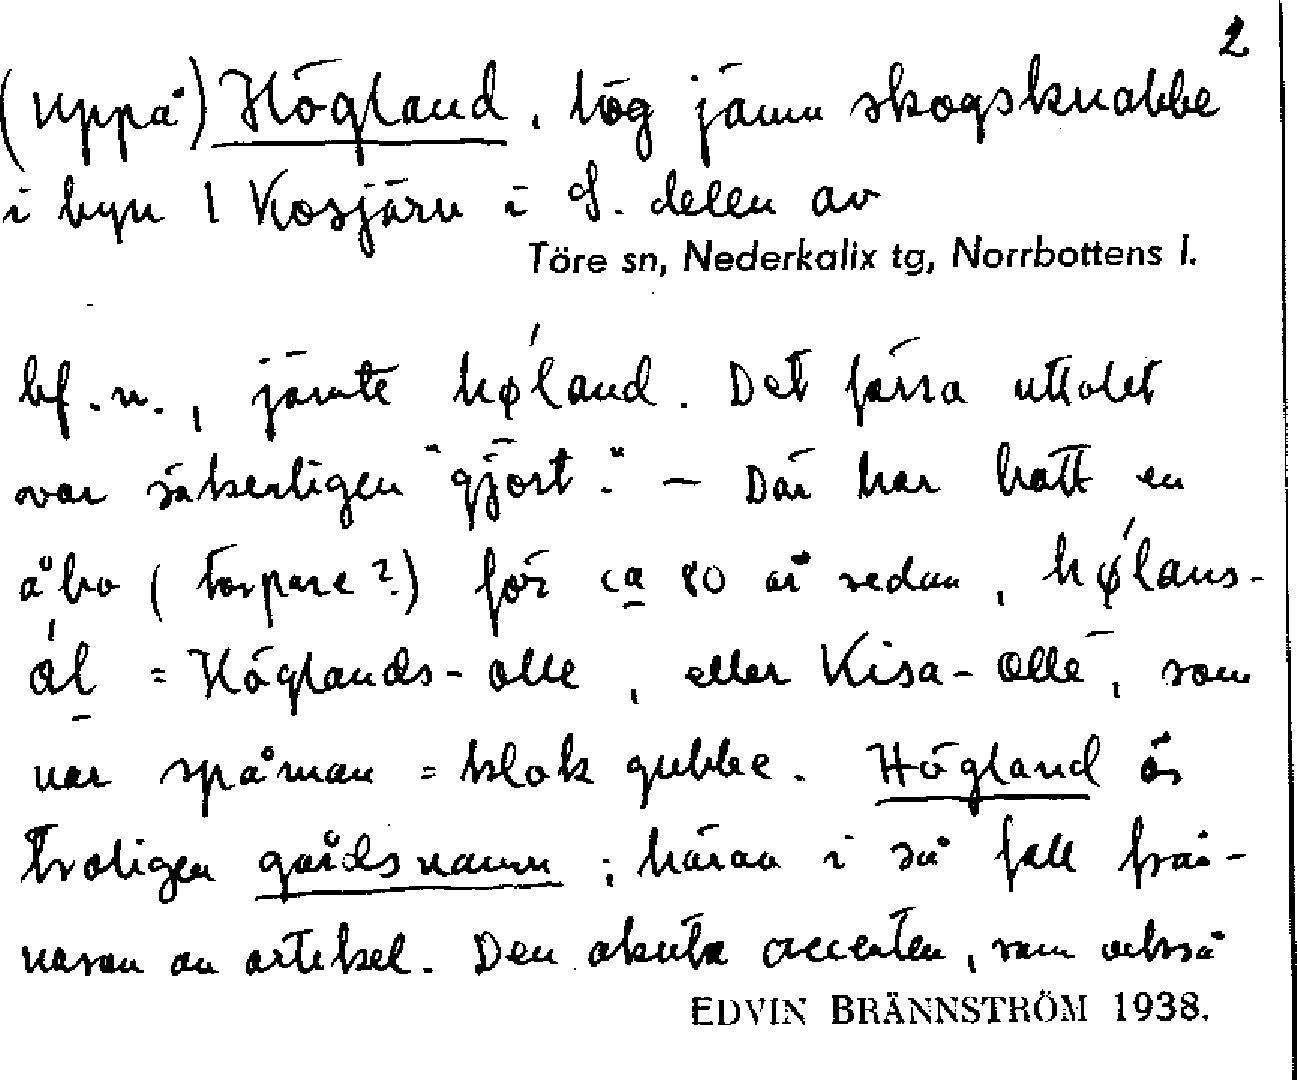 2
(uppå) Högland, hög jämn skogsknabbe
i byn 1 Kosjärv i S. delen av
Töre sn, Nederkalix tg, Norrbottens l.
bf. n., jämte hǿland. Det förra uttalet
var säkerligen "gjort". – Där har haft en
åbo (torpare?) för ca 80 år sedan, hǿlans-
ól = Höglands-Olle, eller Kisa-Olle, som
var spåman = klok gubbe. Högland är
troligen gårdsnamn; härav i så fall från-
varon av artikel. Den akuta accenten, som också
EDVIN BRÄNNSTRÖM 1938.